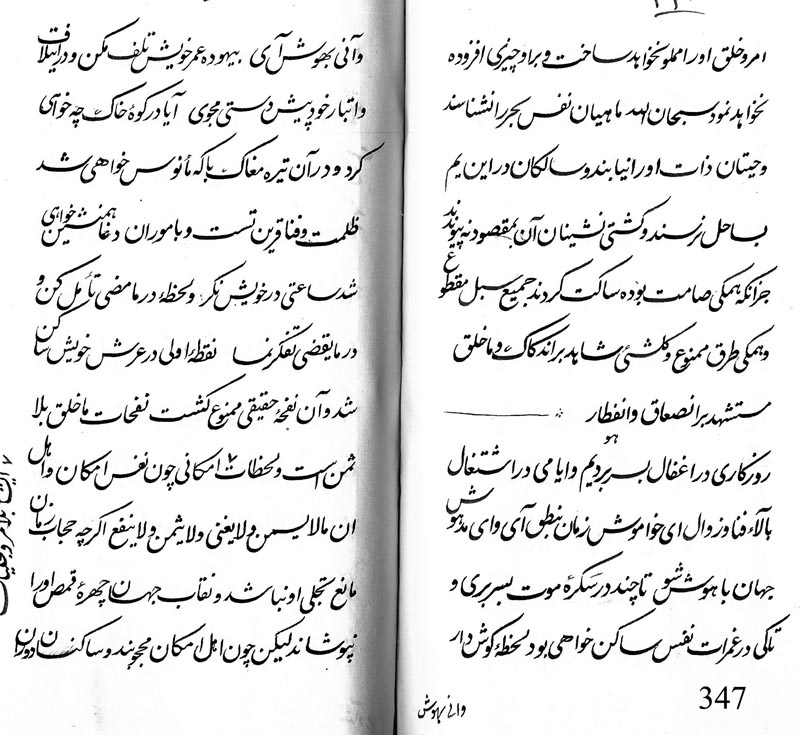 امر و خلق اورا مملو نخواهد ساخت و براو چیزی افزوده
نخواهد نمود سبحان الله ماهیان نفس بحر را نشناسند
و حیتان ذات اورا نیابند و سالکان در این یم
بساحل نرسند و کشتی نشینان آن بمقصود نه پیوندند
جزآنکه همکی صامت بوده ساکت کردند جمیع سبل مقطوع
و همکی طرق ممنوع و کلشئ شاهد براند کاک وما خلق
مستشهد بر انصعاق و انفطار
هو
روزکاری در اغفال بسر بردیم و ایامی در اشتغال
بآلاء فنا و زوال ای خواموش زمان بنطق آی و ای مدهوش
جهان با هوش شو تا چند در سکرهٔ موت بسر بری و
تا کی در غمرات نفس ساکن خواهی بود لحظهٔ کوش دار
وآنی بهوش
347
وآنی بهوش آی بیهوده عمر خویش تلف مکن و در ایتلاف
واتبار خود پیش دستی مجوی آیا در کوهٔ خاک چه خواهی
کرد و در آن تیره مغاک با که مأنوس خواهی شد
ظلمت و فنا قرین تست و باموران دغا همنشین خواهی
شد ساعتی در خویش نکر و لحظهٔ در ما مضی تأمل کن و
در ما یقضی تفکر نما نقطهٔ اولی در عرش خویش ساکن
شد و آن نفحهٔ حقیقی ممنوع کشت نفحات ما خلق بلا
ثمن است و لحظات امکانی چون نفس امکان و اهل
ان مالا یسمن ولا یغنی ولا یثمن ولا ینفع اکرچه حجاب زمان
مانع تجلی او نباشد و نقاب جهان چهرهٔ قمص اورا
نپوشاند لیکن چون اهل امکان محجوبند و ساکنان دوران